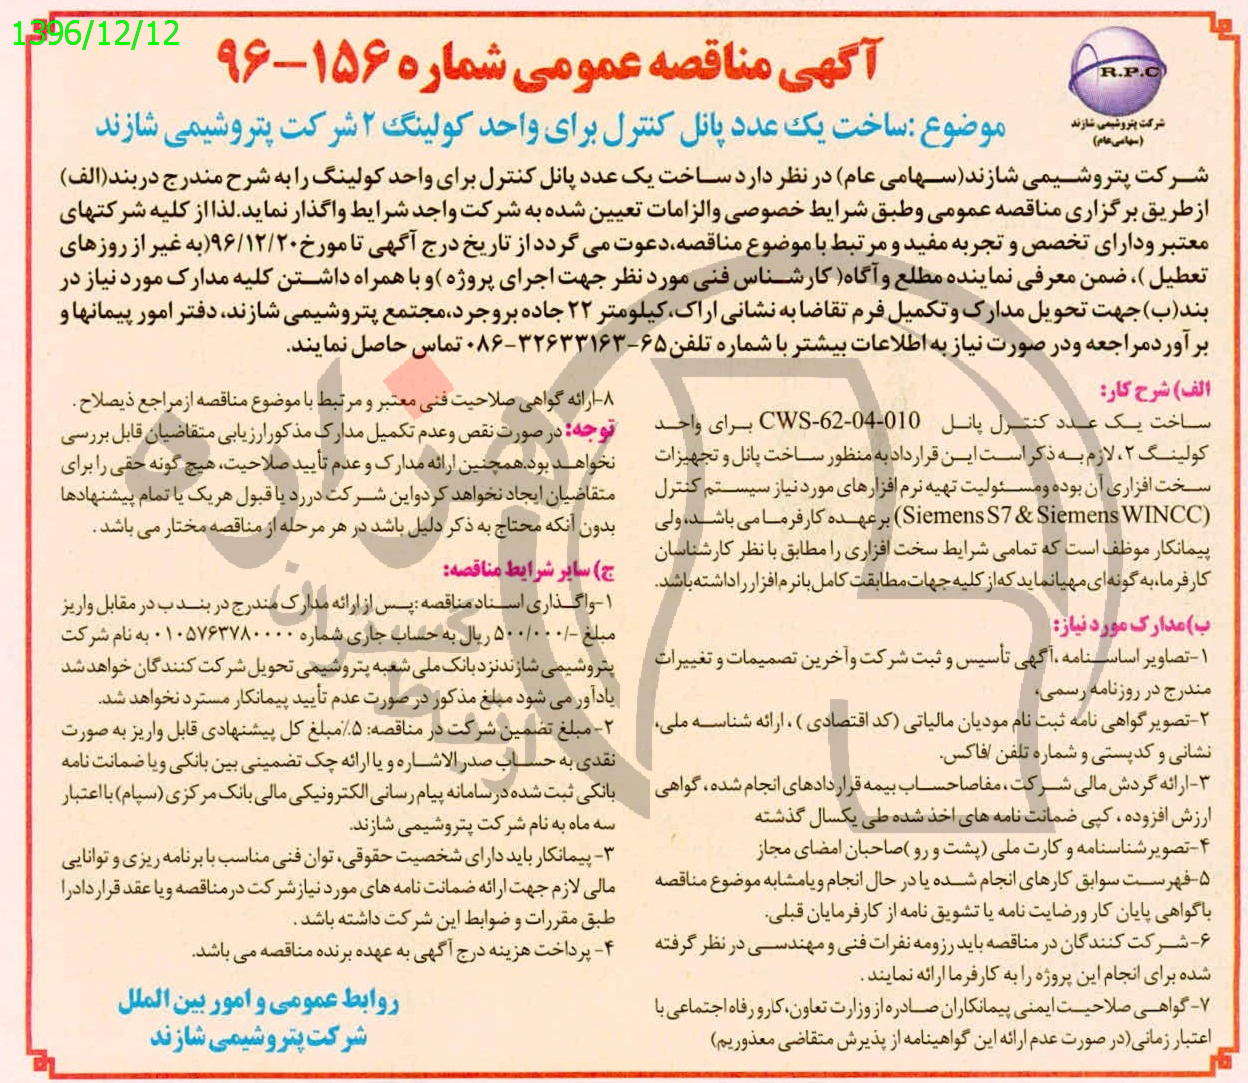 1396/12/12
آگهی مناقصه عمومی شماره ۱۵۶-۹۶
R.P.C
شرکت پتروشیمی شازند
(سهامی عام)
موضوع :ساخت یک عدد پانل کنترل برای واحد کولینگ ۲ شرکت پتروشیمی شازند
شرکت پتروشیمی شازند(سهامی عام) در نظر دارد ساخت یک عدد پانل کنترل برای واحد کولینگ را به شرح مندرج دربند(الف)
ازطریق برگزاری مناقصه عمومی وطبق شرایط خصوصی والزامات تعیین شده به شرکت واجد شرایط واگذار نماید.لذا از کلیه شرکتهای
معتبر ودارای تخصص و تجربه مفید و مرتبط با موضوع مناقصه،دعوت می گردد از تاریخ درج آگهی تا مورخ ۹۶/۱۲/۲۰(به غیر از روزهای
تعطیل )، ضمن معرفی نماینده مطلع و آگاه( کارشناس فنی مورد نظر جهت اجرای پروژه )و با همراه داشتن کلیه مدارک مورد نیاز در
بند(ب)جهت تحویل مدارک و تکمیل فرم تقاضا به نشانی اراک،کیلومتر ۲۲ جاده بروجرد،مجتمع پتروشیمی شازند، دفتر امور پیمانها و
برآوردمراجعه ودر صورت نیاز به اطلاعات بیشتر با شماره تلفن ۶۵-۳۲۶۳۳۱۶۳-۰۸۶ تماس حاصل نمایند.
الف) شرح کار:
ساخت یک عدد کنترل پانل CWS-62-04-010 برای واحد
کولینگ ۲، لازم به ذکر است این قرارداد به منظور ساخت پانل و تجهیزات
سخت افزاری آن بوده ومسئولیت تهیه نرم افزارهای مورد نیاز سیستم کنترل
(Siemens S7 & Siemens WINCC) برعهده کارفرما می باشد، ولی
پیمانکار موظف است که تمامی شرایط سخت افزاری را مطابق با نظر کارشناسان
کارفرما،به گونه ای مهیا نماید که از کلیه جهات مطابقت کامل با نرم افزار را داشته باشد.
ب)مدارک مورد نیاز:
۱-تصاویر اساسنامه ،آگهی تأسیس و ثبت شرکت وآخرین تصمیمات و تغییرات
مندرج در روزنامه رسمی،
۲-تصویر گواهی نامه ثبت نام مودیان مالیاتی (کد اقتصادی ) ، ارائه شناسه ملی،
نشانی و کدپستی و شماره تلفن /فاکس.
۳-ارائه گردش مالی شرکت ، مفاصاحساب بیمه قراردادهای انجام شده ، گواهی
ارزش افزوده ، کپی ضمانت نامه های اخذ شده طی یکسال گذشته
۴-تصویر شناسنامه و کارت ملی (پشت و رو )صاحبان امضای مجاز
۵-فهرست سوابق کارهای انجام شده یا در حال انجام ویامشابه موضوع مناقصه
باگواهی پایان کار ورضایت نامه یا تشویق نامه از کارفرمایان قبلی.
۶-شرکت کنندگان در مناقصه باید رزومه نفرات فنی و مهندسی در نظر گرفته
شده برای انجام این پروژه را به کارفرما ارائه نمایند .
۷-گواهی صلاحیت ایمنی پیمانکاران صادره از وزارت تعاون،کار و رفاه اجتماعی با
اعتبار زمانی(در صورت عدم ارائه این گواهینامه از پذیرش متقاضی معذوریم)
۸-ارائه گواهی صلاحیت فنی معتبر و مرتبط با موضوع مناقصه ازمراجع ذیصلاح .
توجه: در صورت نقص وعدم تکمیل مدارک مذکورارزیابی متقاضیان قابل بررسی
نخواهد بود.همچنین ارائه مدارک و عدم تأیید صلاحیت، هیچ گونه حقی را برای
متقاضیان ایجاد نخواهد کردواین شرکت دررد یا قبول هریک یا تمام پیشنهادها
بدون آنکه محتاج به ذکر دلیل باشد در هر مرحله از مناقصه مختار می باشد .
ج) سایر شرایط مناقصه:
۱-واگذاری اسناد مناقصه :پس از ارائه مدارک مندرج در بند ب در مقابل واریز
مبلغ -/۵۰۰/۰۰۰ ریال به حساب جاری شماره ۰۱۰۵۷۶۳۷۸۰۰۰۰ به نام شرکت
پتروشیمی شازندنزد بانک ملی شعبه پتروشیمی تحویل شرکت کنندگان خواهد شد
یادآور می شود مبلغ مذکور در صورت عدم تأیید پیمانکار مسترد نخواهد شد.
۲- مبلغ تضمین شرکت در مناقصه: ۵٪مبلغ کل پیشنهادی قابل واریز به صورت
نقدی به حساب صدر الاشاره و یا ارائه چک تضمینی بین بانکی ویا ضمانت نامه
بانکی ثبت شده درسامانه پیام رسانی الکترونیکی مالی بانک مرکزی (سپام) بااعتبار
سه ماه به نام شرکت پتروشیمی شازند.
۳- پیمانکار باید دارای شخصیت حقوقی، توان فنی مناسب با برنامه ریزی و توانایی
مالی لازم جهت ارائه ضمانت نامه های مورد نیازشرکت درمناقصه ویا عقد قراردادرا
طبق مقررات و ضوابط این شرکت داشته باشد .
۴- پرداخت هزینه درج آگهی به عهده برنده مناقصه می باشد.
روابط عمومی و امور بین الملل
شرکت پتروشیمی شازند